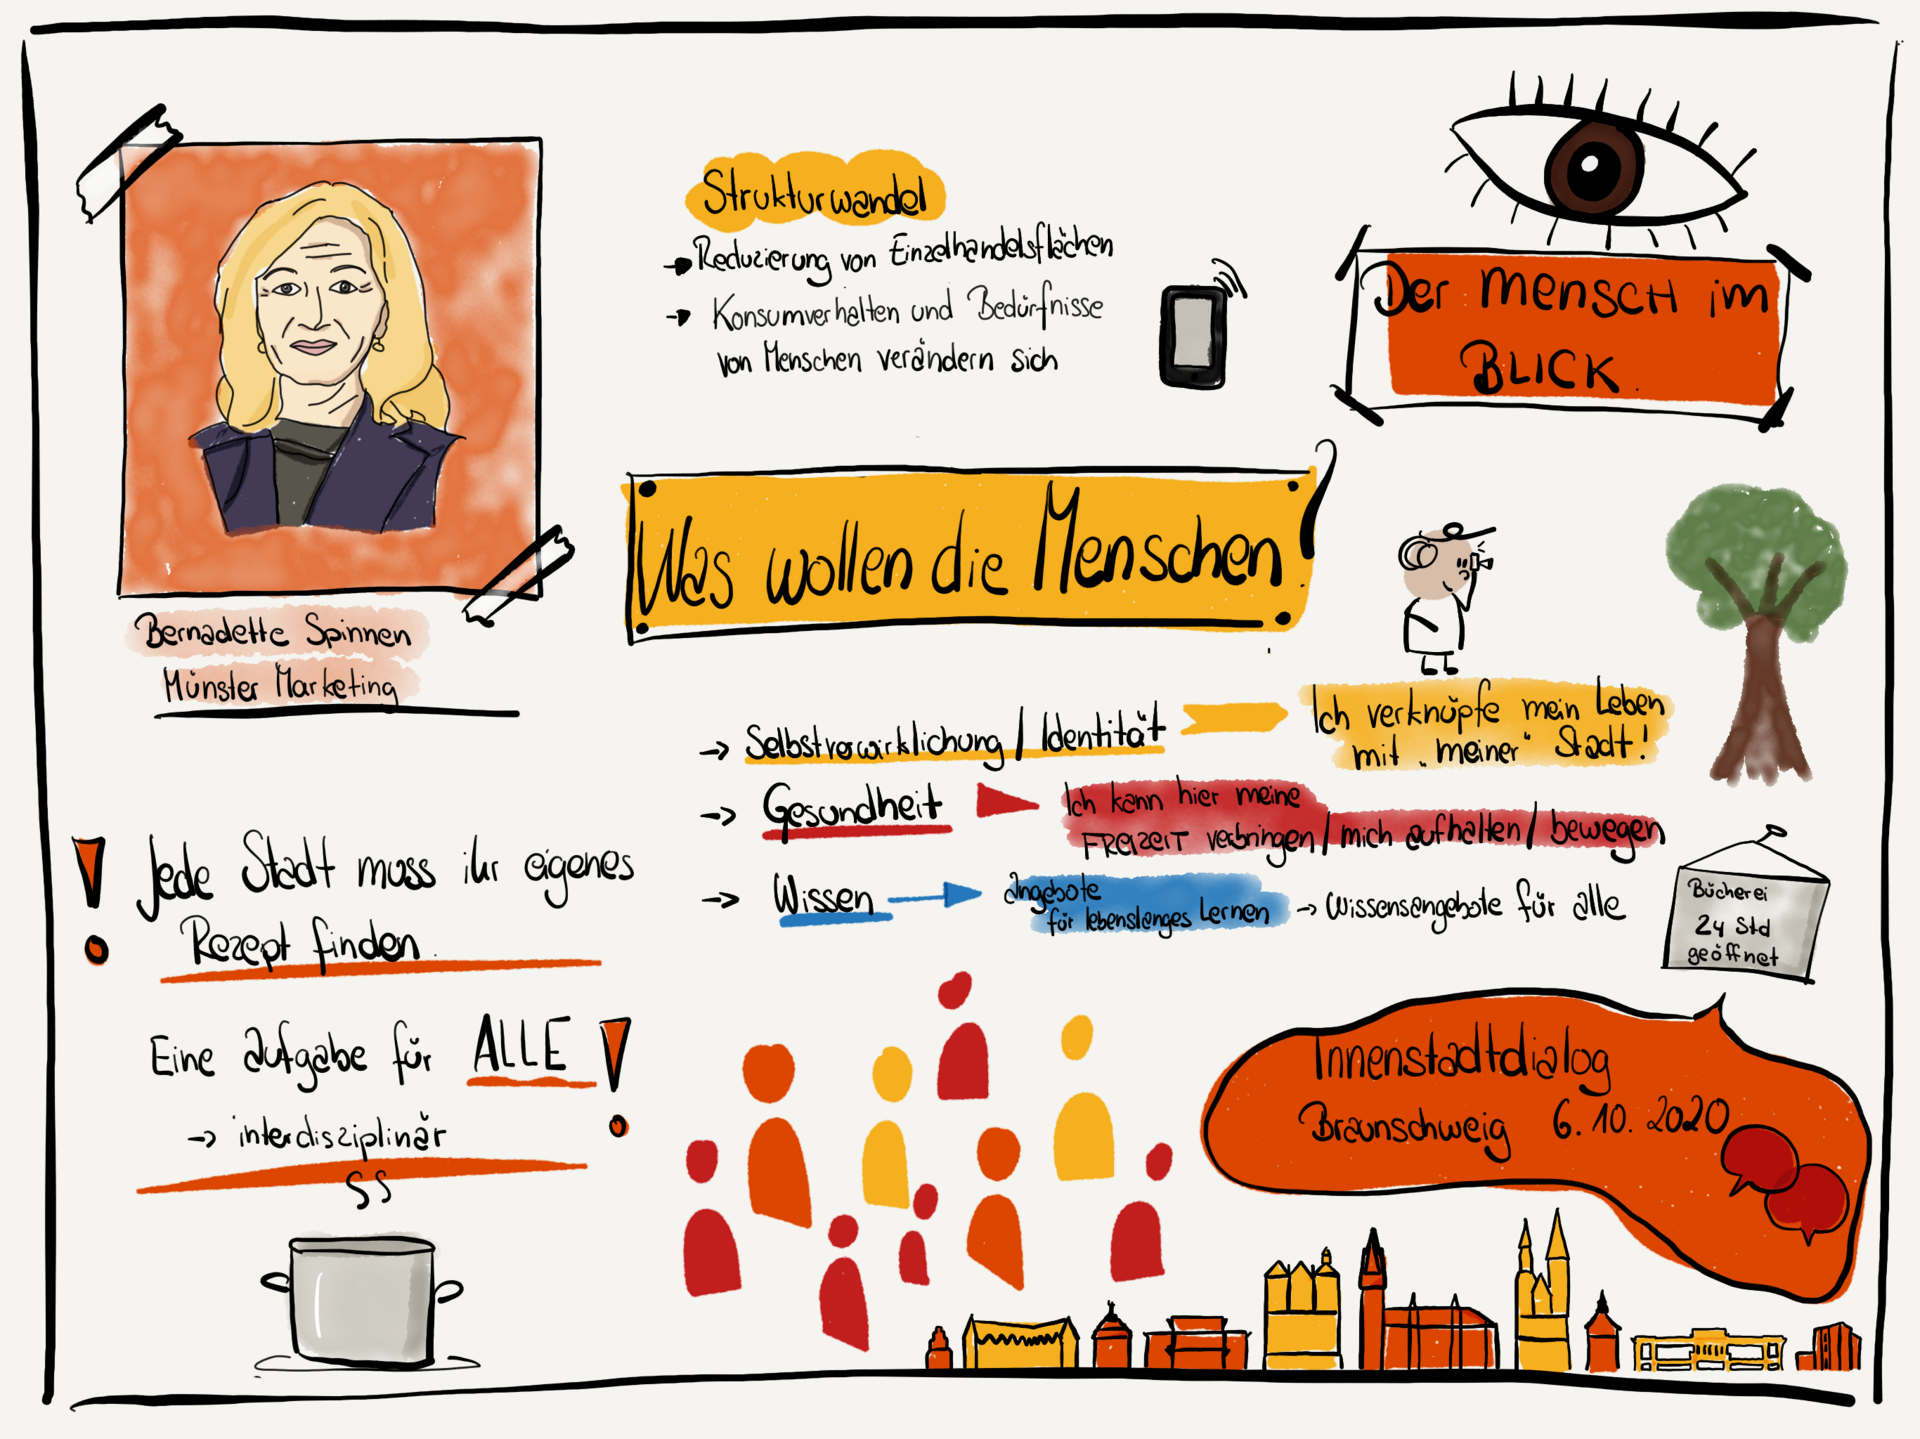 Bernadette Spinnen
Münster Marketing
Strukturwandel
→ Reduzierung von Einzelhandelsflächen
→ Konsumverhalten und Bedürfnisse
von Menschen verändern sich
Der Mensch im
BLICK
Was wollen die Menschen?
→ Selbstverwirklichung / Identität
Ich verknüpfe mein Leben
mit „meiner" Stadt!
→ Gesundheit
Ich kann hier meine
FREIZEIT verbringen / mich aufhalten / bewegen
→ Wissen →
Angebote
für lebenslanges Lernen → Wissensangebote für alle
Bücherei
24 Std
geöffnet
! Jede Stadt muss ihr eigenes
Rezept finden.
Eine Aufgabe für ALLE !
→ interdisziplinär
Innenstadtdialog
Braunschweig 6.10.2020